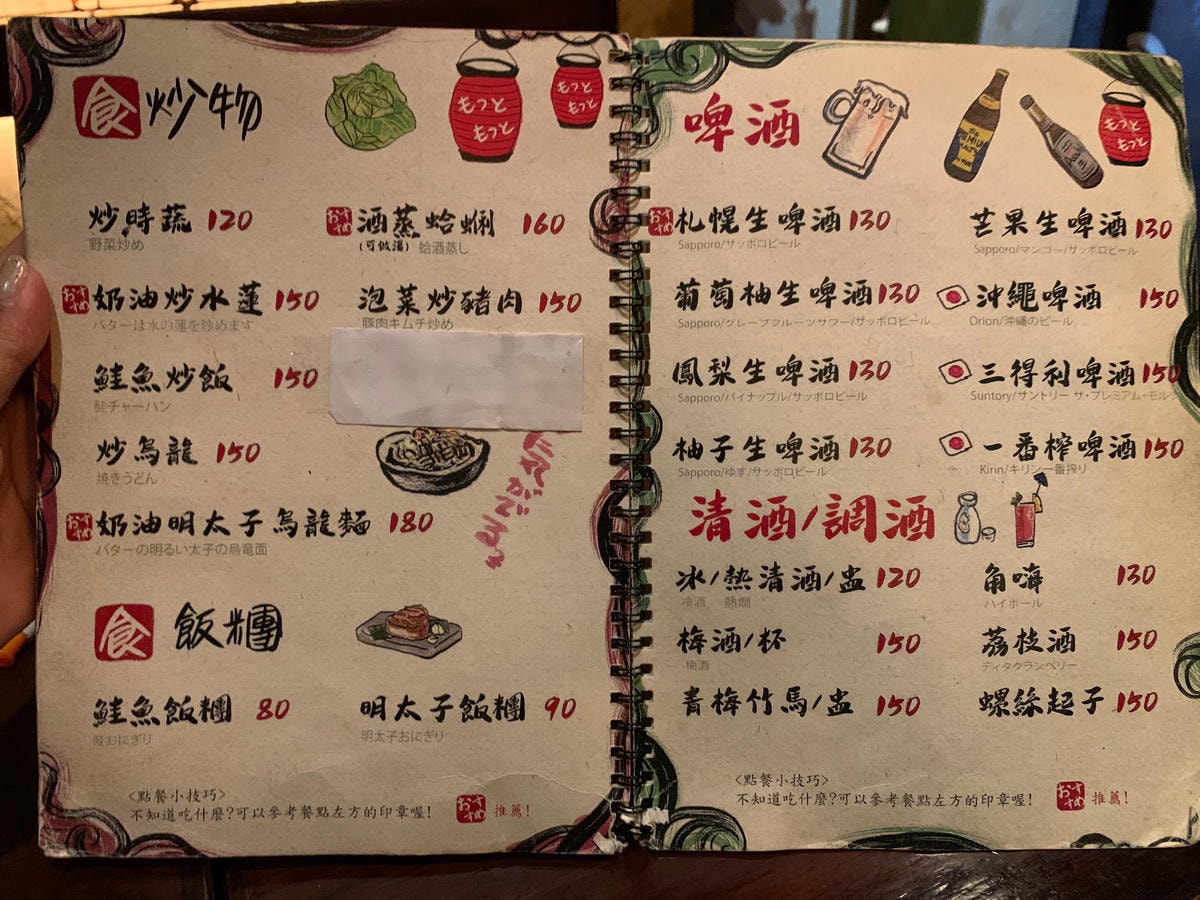 食 炒物
もっと もっと
もっと もっと
炒時蔬 120
野菜炒め
おすすめ 酒蒸蛤蜊 160
(可做湯) 蛤酒蒸し
おすすめ 奶油炒水蓮 150
バターは水の蓮を炒めます
泡菜炒豬肉 150
豚肉キムチ炒め
鮭魚炒飯 150
鮭チャーハン
炒烏龍 150
焼きうどん
おすすめ 奶油明太子烏龍麵 180
バターの明るい太子の烏竜面
食 飯糰
鮭魚飯糰 80
鮭おにぎり
明太子飯糰 90
明太子おにぎり
<點餐小技巧>
不知道吃什麼?可以參考餐點左方的印章喔!
おすすめ 推薦!
啤酒
もっと もっと
おすすめ 札幌生啤酒 130
Sapporo/サッポロビール
芒果生啤酒 130
Sapporo/マンゴー/サッポロビール
葡萄柚生啤酒 130
Sapporo/グレープフルーツサワー/サッポロビール
沖繩啤酒 150
Orion/沖縄のビール
鳳梨生啤酒 130
Sapporo/パイナップル/サッポロビール
三得利啤酒 150
Suntory/サントリー ザ・プレミアム・モルツ
柚子生啤酒 130
Sapporo/ゆず/サッポロビール
一番榨啤酒 150
Kirin/キリン一番搾り
清酒/調酒
冰/熱清酒/盅 120
冷酒 熱燗
角嗨 130
ハイボール
梅酒/杯 150
梅酒
荔枝酒 150
ディタクランベリー
青梅竹馬/盅 150
螺絲起子 150
<點餐小技巧>
不知道吃什麼?可以參考餐點左方的印章喔!
おすすめ 推薦!